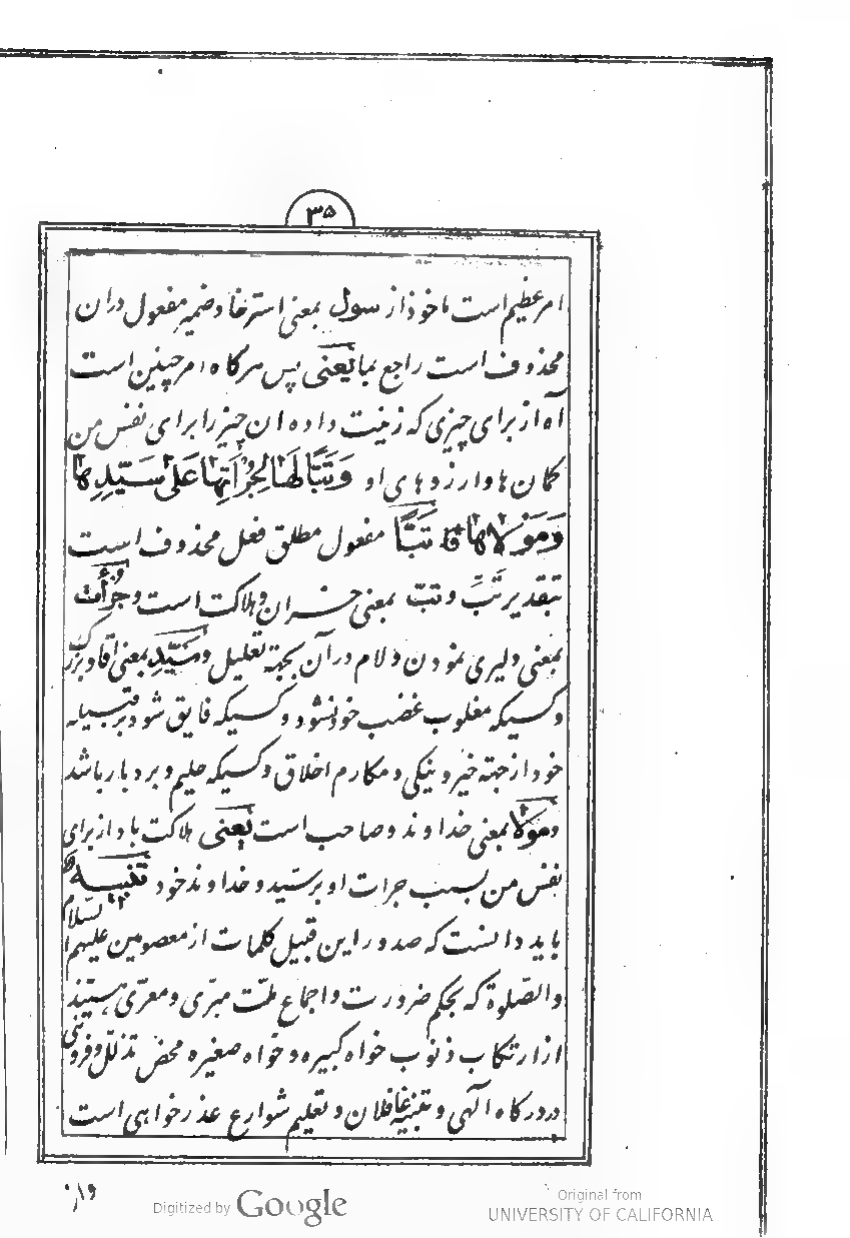 ۳۵
امر عظیم است ماخوذ از سول بمعنی استرخا و ضمیر مفعول دران
محذوف است راجع بما یعنی پس هرکاه امر چنین است
آه از برای چیزی که زینت داده ان چیز را برای نفس من
کمان ها وارزوهای او وَتَبًّا لَهَا لِجُرْأَتِهَا عَلَی سَیِّدِهَا
وَمَوْلَاهَا تَبًّا مفعول مطلق فعل محذوف است
بتقدیر تَبَّ و تبّ بمعنی خسران و هلاکت است و جرأت
بمعنی دلیری نمودن و لام در آن بجهة تعلیل و سَیِّد بمعنی آقا و بزرک
و کسیکه مغلوب غضب خود نشود و کسیکه فایق شود بر قبیله
خود از جهة خیر و نیکی و مکارم اخلاق و کسیکه حلیم و بردبار باشد
و مولا بمعنی خداوند و صاحب است یعنی هلاکت باد از برای
نفس من بسبب جرات او بر سیّد و خداوند خود تنبیه
باید دانست که صدور این قبیل کلمات از معصومین علیهم السلام
والصّلوة که بحکم ضرورت و اجماع ملّت مبرّی و معرّی هستند
از ارتکاب ذنوب خواه کبیره و خواه صغیره محض تذلّل و فروتنی
در درکاه الٓهی و تنبیه غافلان و تعلیم شوارع عذرخواهی است
Digitized by Google
Original from
UNIVERSITY OF CALIFORNIA